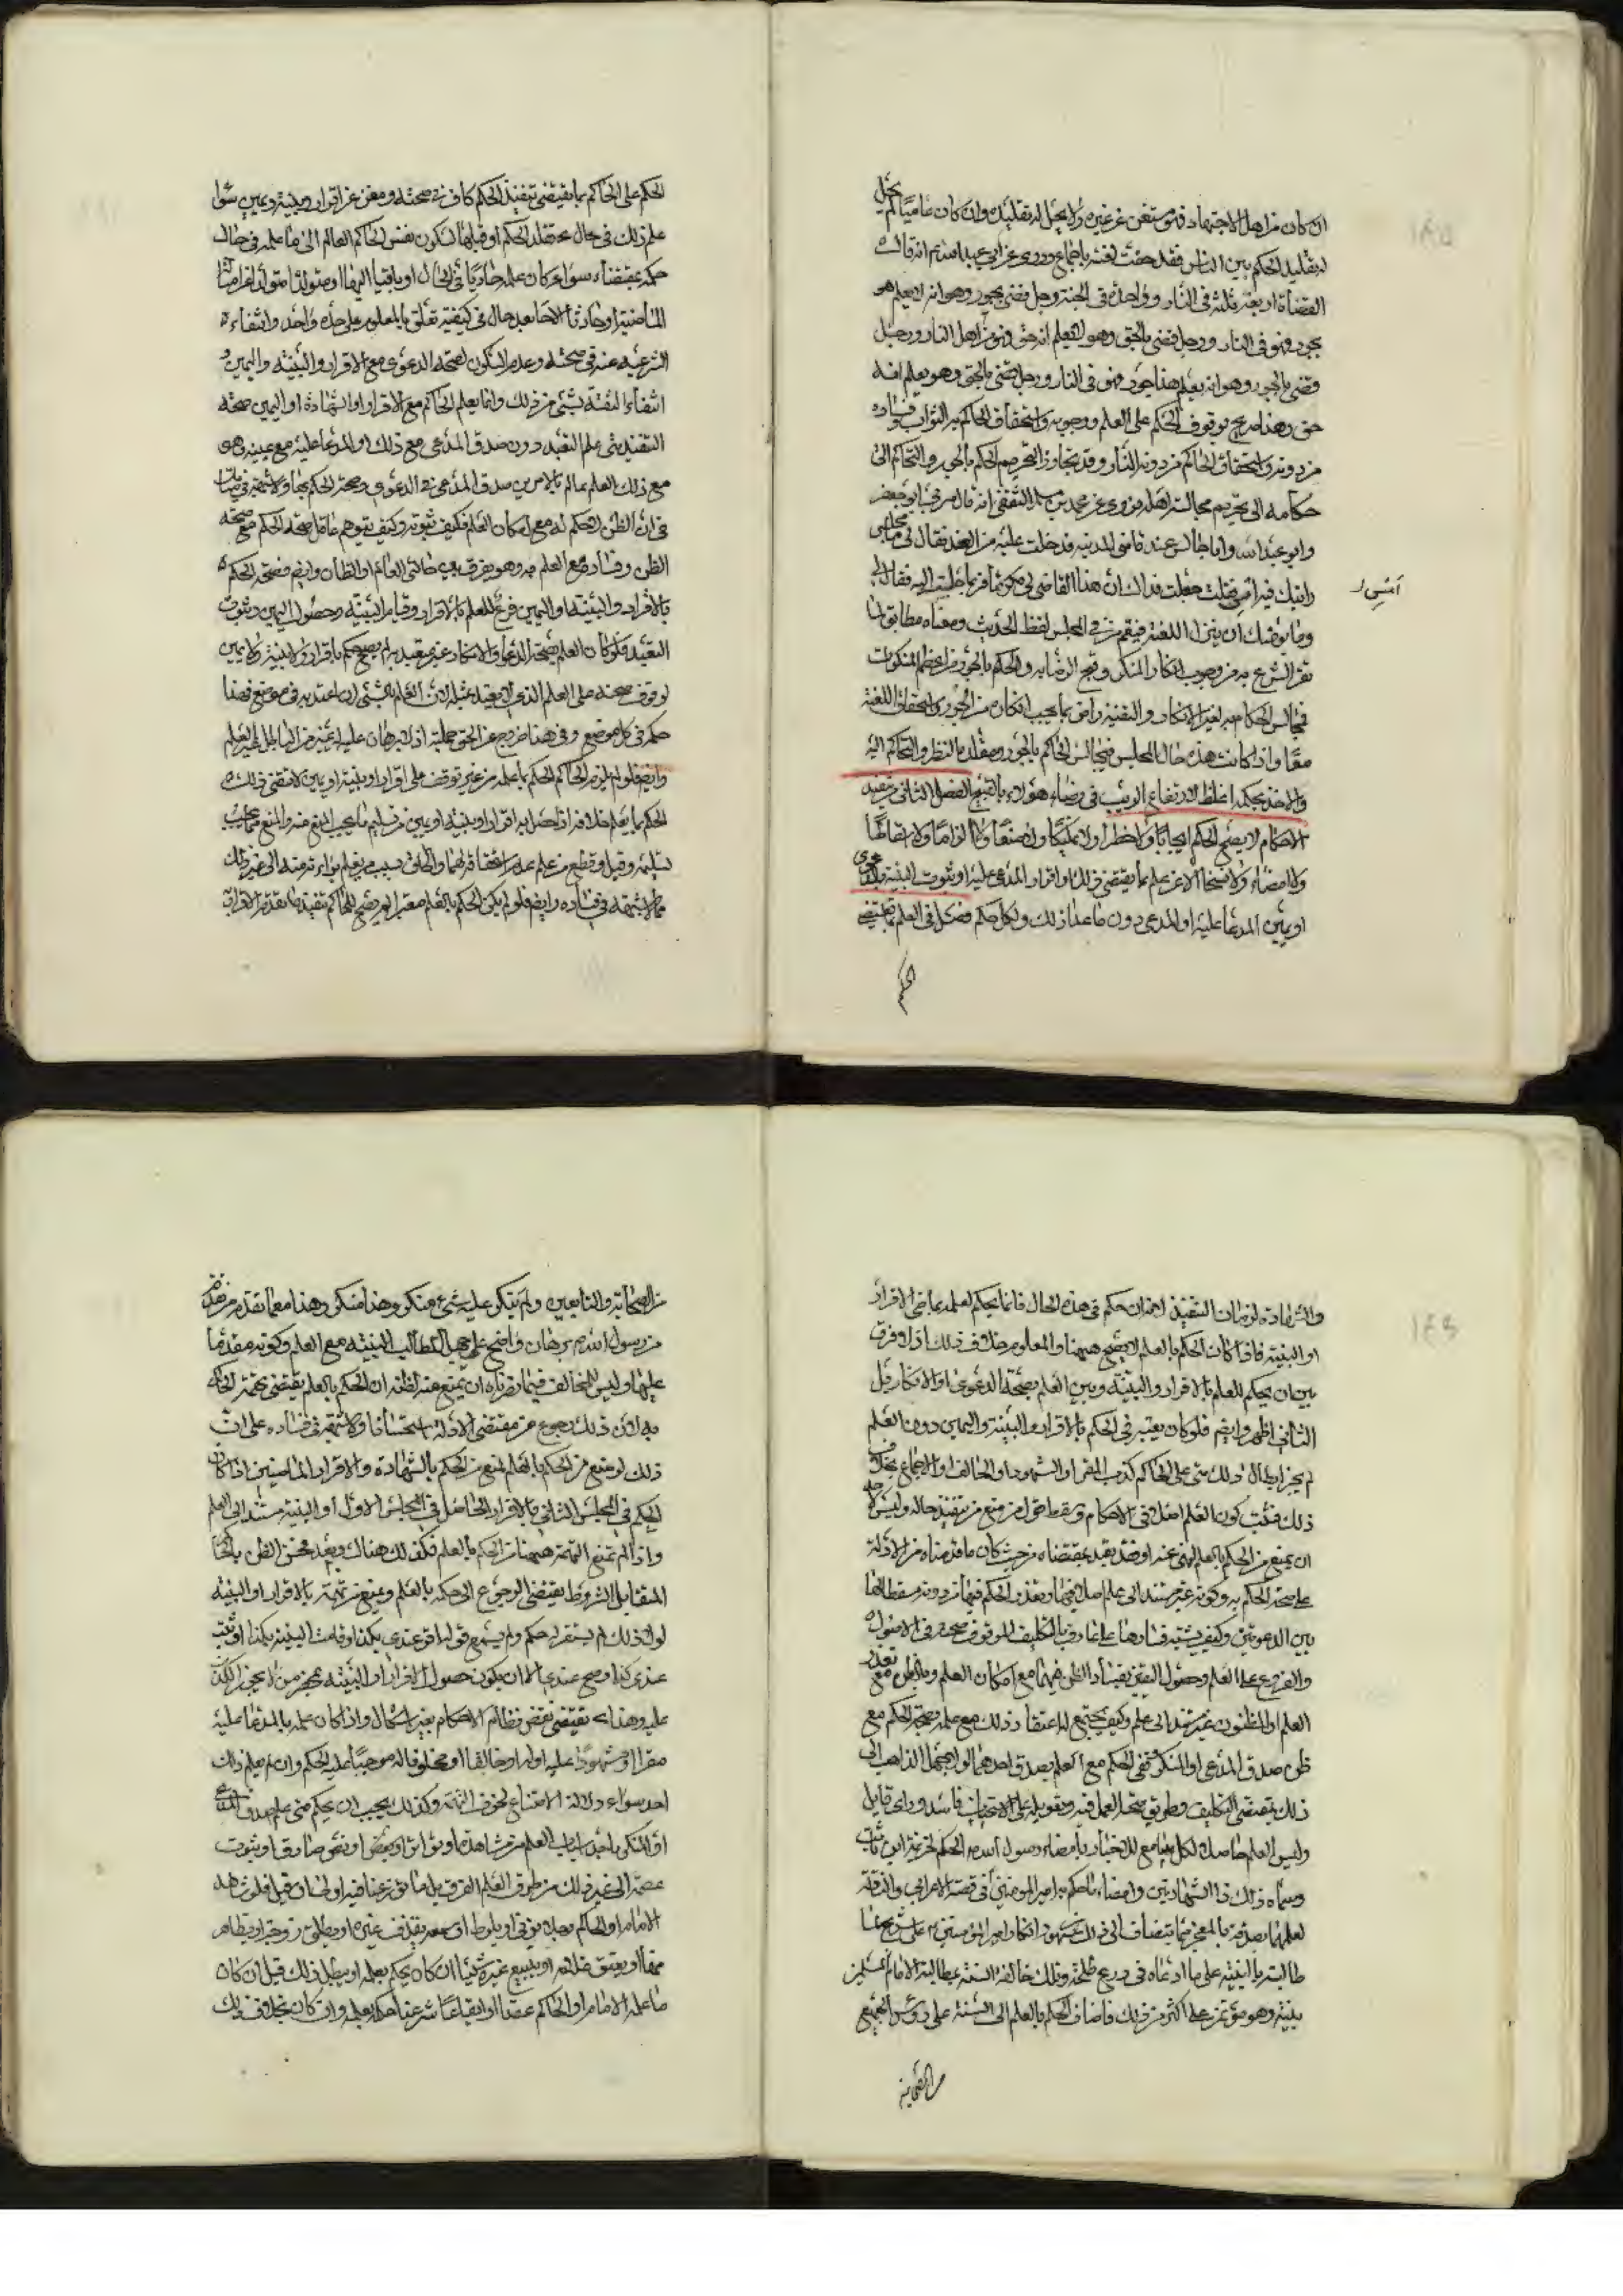 ان كان من اهل الاجتهاد فهو مستغن عن غيره ولا يحل له تقليده وان كان عاميا لم يحل
له تقليد الحكم بين الناس فقد حقت لعنته باجماع وروى عن ابي عبد الله انه قال
القضاة اربعة ثلثة في النار وواحد في الجنة رجل قضى بجور وهو انه لا يعلم هو
بجور فهو في النار ورجل قضى بالحق وهو لا يعلم انه حق فهو من اهل النار ورجل
قضى بالجور وهو انه يعلم هذا جور فهو في النار ورجل قضى بالحق وهو يعلم انه
حق وهذا صريح بوقوف الحكم على العلم ووجوبه واستحقاق الحاكم به الثواب وفساده
من دونه واستحقاق الحاكم من دونه النار وقد تجاوز التحريم الحكم بالجور والتحاكم الى
حكامه الى تحريم مجالسة اهله فروى عن محمد بن مسلم الثقفي انه قال مر بي ابو جعفر
وابو عبد الله وانا جالس عند قاضي المدينة فدخلت عليه من الغد فقال لي ما مجلس
رايتك فيه امس فقلت جعلت فداك ان هذا القاضي لي مكرم فربما جلست اليه فقال لي
امس
وما يؤمنك ان ينزل اللعنة فيعم من في المجلس لفظ الحديث ومعناه مطابق لما
تقرر الشرع به من وجوب انكار المنكر وقبح الرضا به والحكم بالجور من اعظم المنكرات
فمجالس الحكام به لغير الانكار والتقية راض بما يجب انكاره من الجور فاستحقا اللعنة
معا واذا كانت هذه حال المجلس فمجالس الحاكم بالجور ومقلده النظر والتحاكم اليه
والاخذ بحكمه اغلظ لارتفاع الريب في رضاء هؤلاء بالقبيح الفصل الثاني في تنفيذ
الاحكام لا يصح الحكم ايجابا ولا حظرا ولا تمليكا ولا صنفا ولا الزاما ولا اسقاطا
ولا امضاء ولا فسخا الا عن علم بما يقتضي ذلك او اقرار المدعى عليه او ثبوت البينة بالدعوى
او يمين المدعا عليه او المدعي دون ما عدا ذلك ولكل حكم فصل في العلم بما يقتضي
الحكم
الحكم على الحاكم بما يقتضي تنفيذ الحكم كاف في صحته ومغن عن اقرار وبينة ويمين سواء
علم ذلك في حال تقلد الحكم او قبلها لسكون نفس الحاكم العالم الى ما علمه في حال
حكمه بمقتضاه سواء كان علمه حادثا في الحال او باقيا اليها او متولدا
الشرعية عنه في صحته وعدم السكون لصحة الدعوى مع الاقرار والبينة واليمين و
انتفاء الثقة بشيء من ذلك وانما يعلم الحاكم مع الاقرار او الشهادة او اليمين صحة
التنفيذ متى علم التعبد دون صدق المدعي مع ذلك او المدعا عليه مع يمينه وهو
مع ذلك العلم عالم بالامرين صدق المدعي في الدعوى وصحة الحكم بها ولا شبهة في
في ان الظن لا حكم له مع امكان العلم فكيف بثبوته وكيف يتوهم عاقل صحة الحكم مع صحة
الظن وفساده مع العلم به وهو يفرق بين حالتي العالم او الظان وايضا فصحة الحكم
بالاقرار والبينة او اليمين فرع للعلم بالاقرار وقيام البينة وحصول اليمين وثبوت
التعبد فلو كان العلم بصحة الدعوى او الانكار غير معتد به لم يصح حكم باقرار ولا بينة ولا يمين
لوقوف صحته على العلم الذي لا يعتد بمثله لان العلم بالشيء ان اعتد به في موضع فهذا
حكمه في كل موضع وفي هذا خروج عن الحق جملة اذ لا برهان عليه يميزه من الباطل الا العلم
وايضا فلو لم يلزم الحاكم الحكم بما علمه من غير توقف على اقرار او بينة او يمين لاقتضى ذلك
الحكم بما يعلم خلافه اذا حصل به اقرار او بينة او يمين من تسليم ما يجب المنع منه والمنع مما يجب
تسليمه وقتل وقطع من علم عدم استحقاقه لهما والحاق نسب من يعلم براءته منه الى غير ذلك
مما لا شبهة في فساده وايضا فلو لم يكن الحكم بالعلم معتبرا لم يصح للحاكم تنفيذ ما تقدمه الاقرار
والشهادة لزمان التنفيذ لانه ان حكم في هذه الحال فانما يحكم لعلمه بماضي الاقرار
او البينة فاذا كان الحكم بالعلم لا يصح هيهنا والمعلوم خلاف ذلك اذ لا فرق
بين ان يحكم للعلم بالاقرار والبينة وبين العلم بصحة الدعوى او الانكار بل
الثاني اظهر وايضا فلو كان يعتبر في الحكم بالاقرار والبينة واليمين دون العلم
لم يجز ابطال ذلك متى علم الحاكم كذب المقر او الشهود او الحالف او الاجماع بخلاف
ذلك فثبت كون العلم اصلا في الاحكام وسقط قول من منع من تنفيذ حاله وليس لاحد
ان يمنع من الحكم بالعلم لنهي عنه او فقد تعبد بمقتضاه من حيث كان ما قدمناه من الادلة
على صحة الحكم به وكونه غير مستند الى علم اصل فيها وتعذر الحكم فيها من دونه مسقطا لها
بين الدعويين وكيف يشتبه فسادهما على عارف بالتكليف الموقوف صحته في الاصول
والفروع على العلم وحصول اليقين بفساد الظن فيهما مع امكان العلم وبالظن مع تعذر
العلم او المظنون غير مستند الى علم وكيف يجتمع له اعتقاد ذلك مع علمه بصحة الحكم مع
ظن صدق المدعي او المنكر ونفي الحكم مع العلم بصدق احدهما لولا جهل الذاهب الى
ذلك بمقتضى التكليف وطريق صحة العمل فيه وتعويله على الاستحسان فاسد وراي قايل
وليس العلم حاصلا لكل سامع للاخبار بامضاء رسول الله الحكم لخزيمة ابن ثابت
وسماه ذلك ذا الشهادتين وامضاء ما حكم به امير المؤمنين في قصة الاعرابي والناقة
لعلمهما بصدقه بالمعجز مما ينضاف الى ذلك مشهور انكار امير المؤمنين على شريح لما
طالبه بالبينة على ما ادعاه في درع طلحة وذلك خالفت السنة بمطالبة الامام المسلمين
ببينة وهو مؤتمن على اكثر من ذلك فاضاف الحكم بالعلم الى السنة على رؤس الجميع
من الصحابة
من الصحابة والتابعين ولم ينكر عليه شيء منكر وهذا منكر وهذا مع ما تقدم
من رسول الله برهان واضح على جهل الطالب للبينة مع العلم وكونه مقدما
عليها وليس للمخالف فيما قررناه ان يمنع منه لظنه ان الحكم بالعلم يقتضي تهمة الحاكم
به لان ذلك رجوع عن مقتضى الادلة استحسانا ولا شبهة في فساده على ان
ذلك لو منع من الحكم بالعلم لمنع من الحكم بالشهادة والاقرار الماضيين اذا كان
الحكم في المجلس الثاني بالاقرار الحاصل في المجلس الاول او البينة مستندا الى العلم
واذا لم تمنع التهمة هيهنا من الحكم بالعلم فكذلك هناك وبعد فحسن الظن بالحاكم
المتقابل الشروط يقتضي الرجوع الى حكمه بالعلم ويمنع من تهمته بالاقرار او البينة
لولا ذلك لم يستقر له حكم ولم يسمع قوله اقر عندي بكذا وقامت البينة بكذا او ثبت
عندي كذا وصح عندي الا ان يكون حصول الاقرار او البينة بمحضر من لا يجوز الكذب
عليه وهذا يقتضي نقض نظام الاحكام بغير اشكال واذا كان علمه بالمدعا عليه
مقرا او مشهودا عليه او له او حالفا او محلوفا له موجبا عليه الحكم وان لم يعلم ذلك
احد سواه ولا له الامتناع لخوف التهمة وكذلك يجب ان يحكم متى علم صدق المدعي
او المنكر باحد اسباب العلم من مشاهدة او تواتر او نص او نص صادق او ثبوت
عصمة الى غير ذلك من طرق العلم الفرق بل ما تنوزعنا فيه اولى فان قيل فلو شاهد
الامام او الحاكم رجلا يزني او يلوط او سمعه يقذف غيره او يطلق زوجته او يظاهر
منها او يعتق غلامه او يبيع غيره شيئا اكان يحكم بعلمه او يبطل ذلك قيل ان كان
ما علمه الامام او الحاكم عقدا او ايقاعا شرعيا حكم بعلمه وان كان بخلاف ذلك